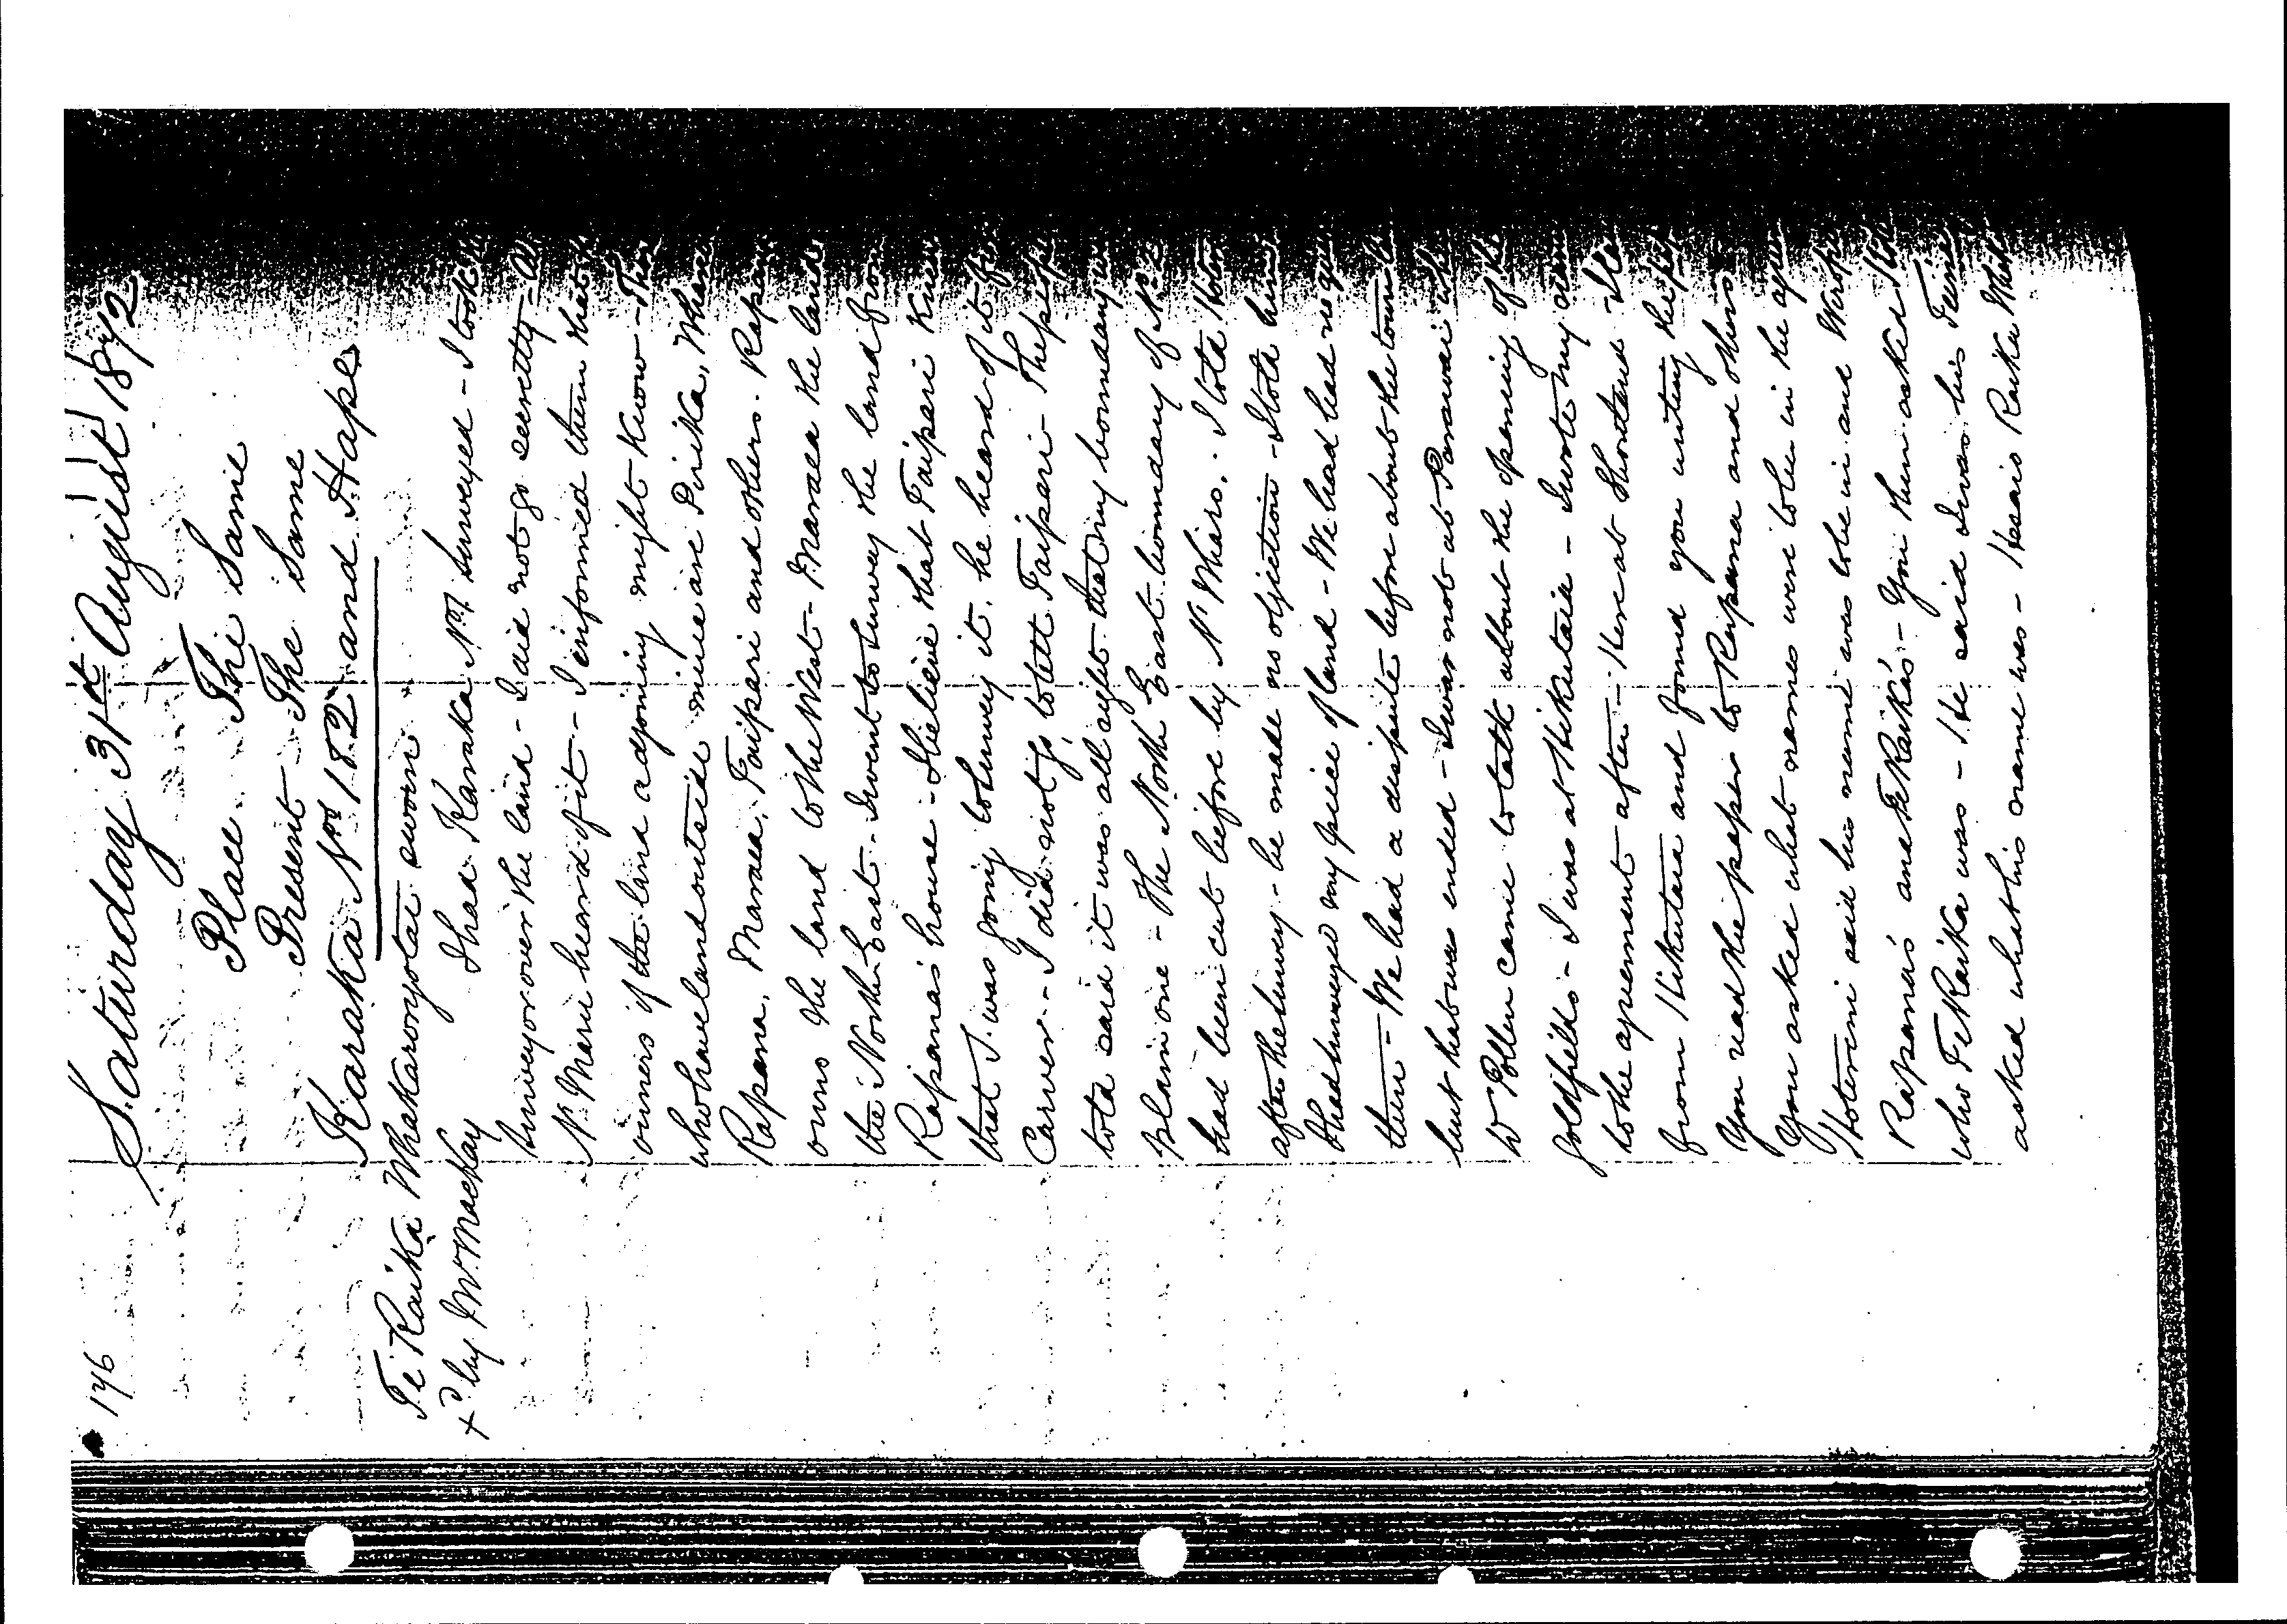 146
Saturday 31st August 1872
Place The Same
Present The Same
Karaka Nos 1 & 2 and Hape
Te Raika Whakarongotai sworn
x d by Mr Mackay I had Karaka No 1 surveyed - I took
Surveyor over the land - I did not go secretly - All
N. Maru heard of it - I informed them that
owners of the land adjoining might know - The
who have land outside mine are Pirika,
Rapana, Maraea, Taipari and others. Rapana
owns the land to the West - Maraea the land
the North East - I went to survey the land from
Rapana's house - I believe that Taipari knew
that I was going to survey it, he heard of it from
Carver - I did not go to tell Taipari - The people
told said it was all right that my boundary was
plain one - The North East boundary of No 2
had been cut before by N. Whiro. I told Hotereni
after the survey - he made no objection - I told him
I had surveyed my piece of land - We had had no
then - We had a dispute before about the
but that was ended - I was not at Parawai when
Dr Pollen came to talk about the opening of the
goldfields - I was at Hikutaia - I wrote my name
to the agreement after - Here at Shortland - I
from Hikutaia and found you writing the
You read the paper to Rapana and others
You asked what names were to be in the
Hotereni said his name was to be in and
Rapana's and Te Raika's - You then asked
who Te Raika was - He said I was his
asked what his name was - Is it Raika